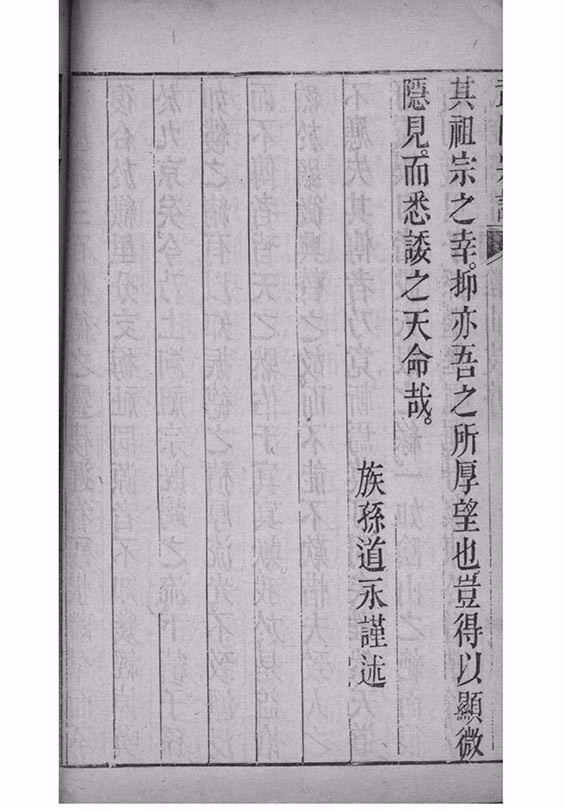 其祖宗之幸。抑亦吾之所厚望也。豈得以顯微
隱見。而悉諉之天命哉。
族孫道永謹述